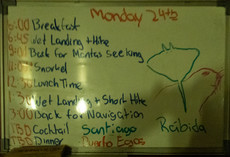 Monday 24th
6:00 Breakfast
6:45 Wet Landing + Hike
9:00 Back for Mantas Seeking
11:00 Snorkel
12:30 Lunch Time
1:30 Wet Landing + Short Hike
3:00 Back for Navigation
TBD Cocktail Santiago
TBD Dinner Puerto Egas
Rábida